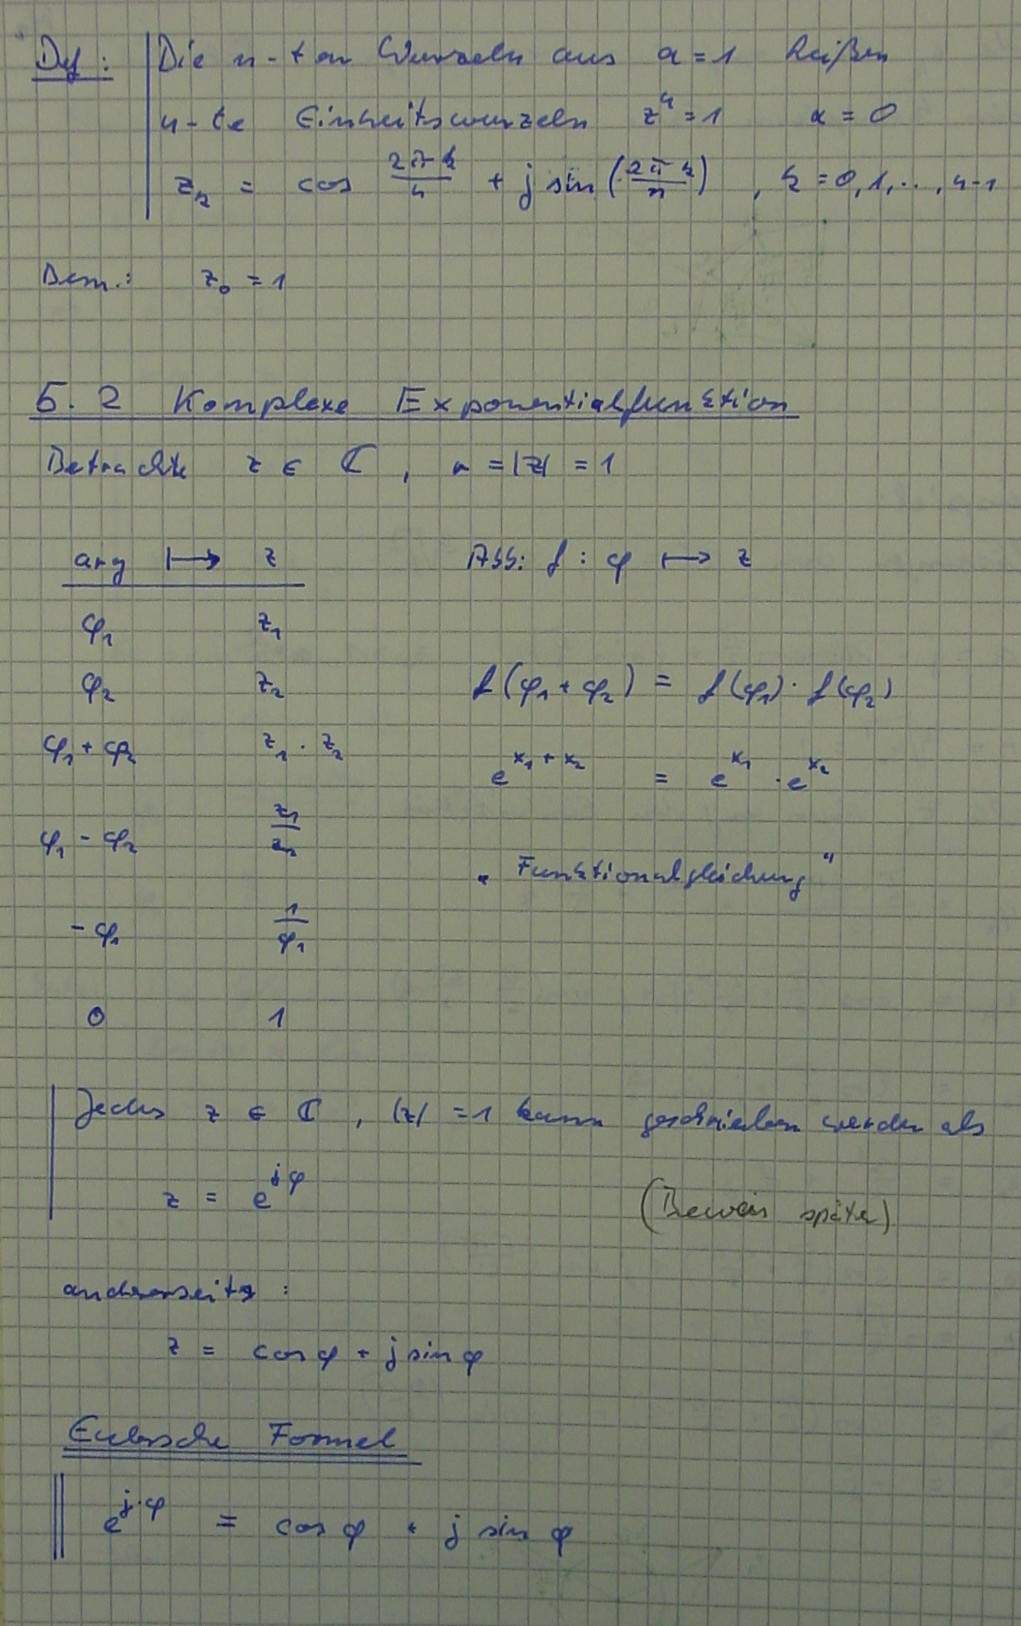 Def: Die n-ten Wurzeln aus a = 1 heißen
n-te Einheitswurzeln z^n = 1 α = 0
z_k = cos 2πk/n + j sin (2πk/n) , k = 0, 1, ..., n-1
Bem.: z_0 = 1
5.2 Komplexe Exponentialfunktion
Betrachte z ∈ ℂ , r = |z| = 1
arg ↦ z Abb: f : φ ↦ z
φ_1 z_1
φ_2 z_2 f(φ_1 + φ_2) = f(φ_1) · f(φ_2)
φ_1 + φ_2 z_1 · z_2
e^{x_1 + x_2} = e^{x_1} · e^{x_2}
φ_1 - φ_2 z_1/z_2
„Funktionalgleichung“
-φ_1 1/φ_1
0 1
Jedes z ∈ ℂ , |z| = 1 kann geschrieben werden als
z = e^{jφ} (Beweis später)
andrerseits :
z = cos φ + j sin φ
Eulersche Formel
e^{j·φ} = cos φ + j sin φ